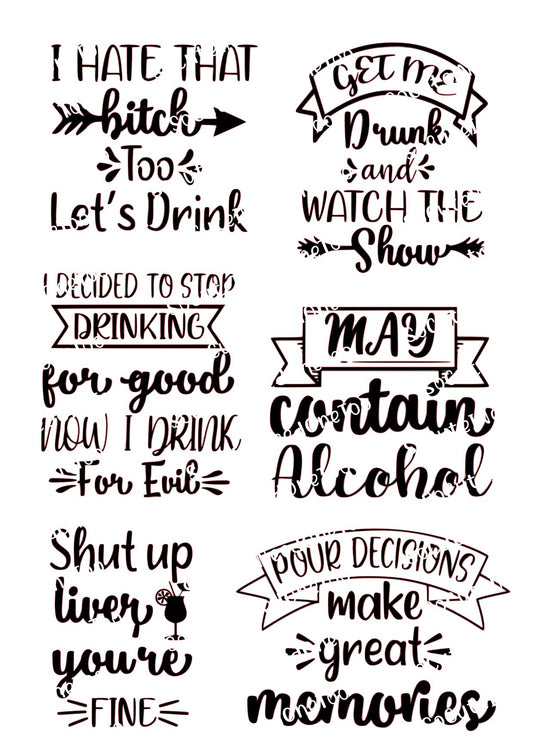 I HATE THAT
bitch
Too
Let's Drink
GET ME
Drunk
and
WATCH THE
Show
I DECIDED TO STOP
DRINKING
for good
NOW I DRINK
For Evil
MAY
contain
Alcohol
Shut up
liver
you're
FINE
POUR DECISIONS
make
great
memories